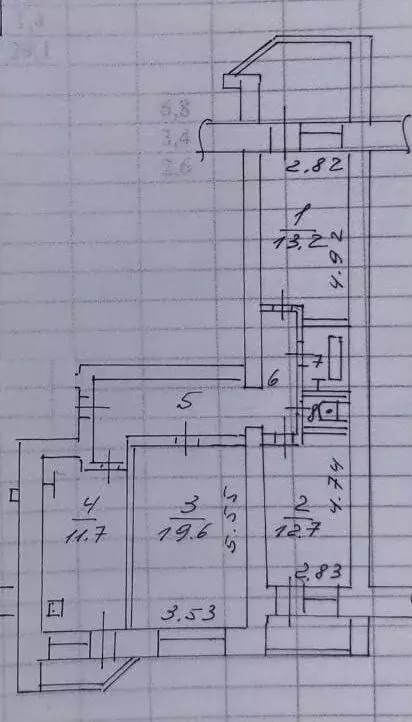 6,8
3,4
2.82
1
13.2
4.92
7
6
5
8
4
11.7
3
19.6
5.55
2
12.7
4.74
2.83
3.53